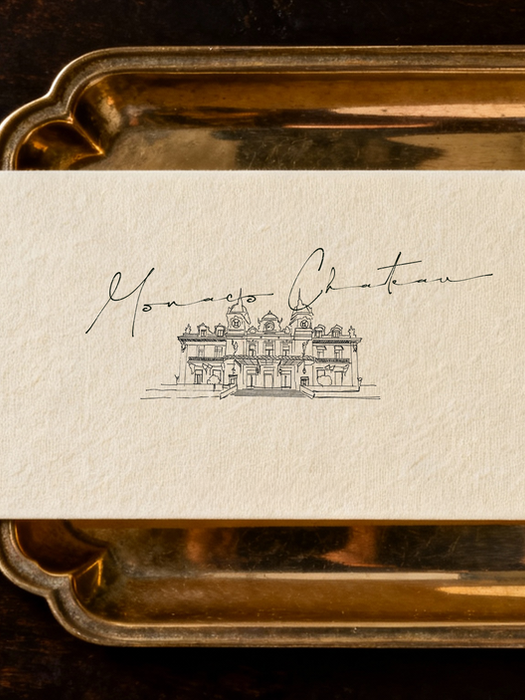 Monaco Chateau